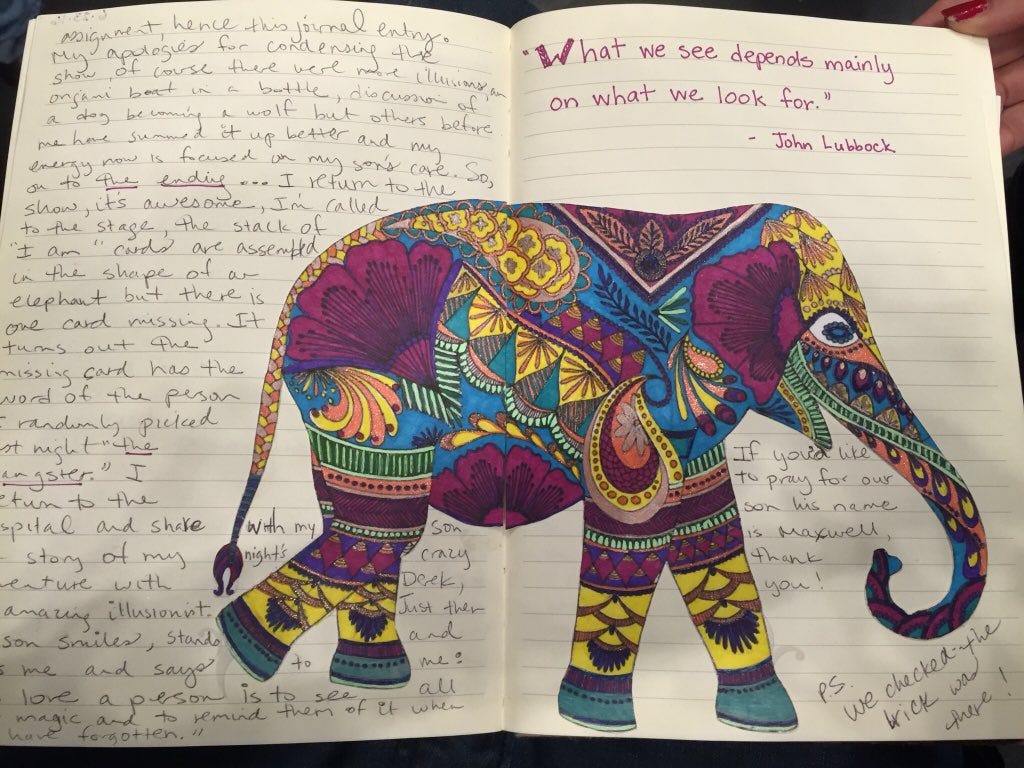 assignment, hence this journal entry.
My apologies for condensing the
show, of course there were more illusions, an
organi boat in a bottle, discussion of
a dog becoming a wolf but others before
me have summed it up better and my
energy now is focused on my son's care. So,
on to the ending... I return to the
show, it's awesome, I'm called
to the stage, the stack of
"I am" cards are assembled
in the shape of an
elephant but there is
one card missing. It
turns out the
missing card has the
word of the person
I randomly picked
st night "the
angster." I
eturn to the
spital and share with my son
story of my night's crazy
venture with Derek,
amazing illusionist. Just then
son smiles, stands and
s me and says to me:
love a person is to see all
magic and to remind them of it when
have forgotten."
"What we see depends mainly
on what we look for."
- John Lubbock
If you'd like
to pray for our
son his name
is Maxwell,
thank
you!
P.S.
we checked-the
brick was
there!